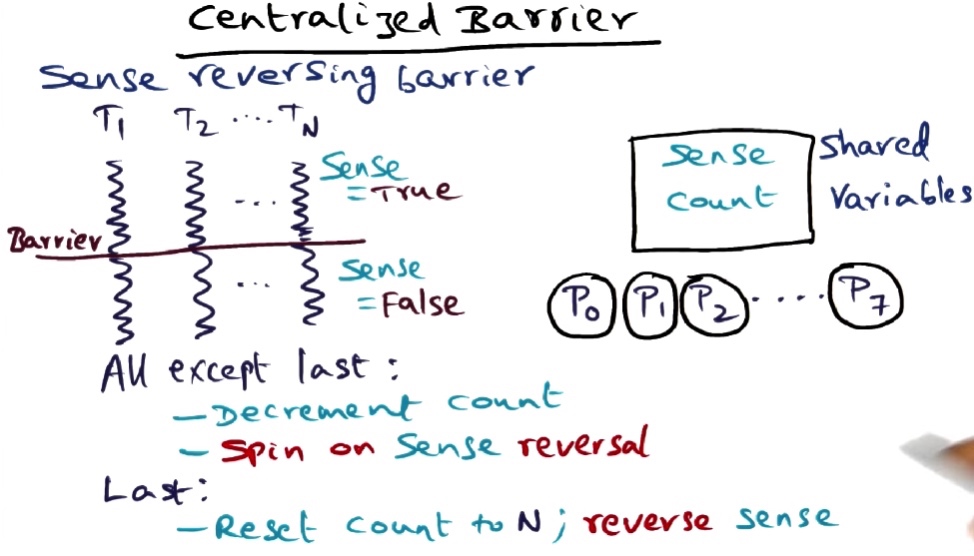 Centralized Barrier
Sense reversing barrier
T1 T2 .... TN
Sense
= True
...
Barrier
Sense
= False
...
Sense
Count
Shared
Variables
P0 P1 P2 .... P7
All except last:
- Decrement count
- Spin on Sense reversal
Last:
- Reset count to N; reverse sense